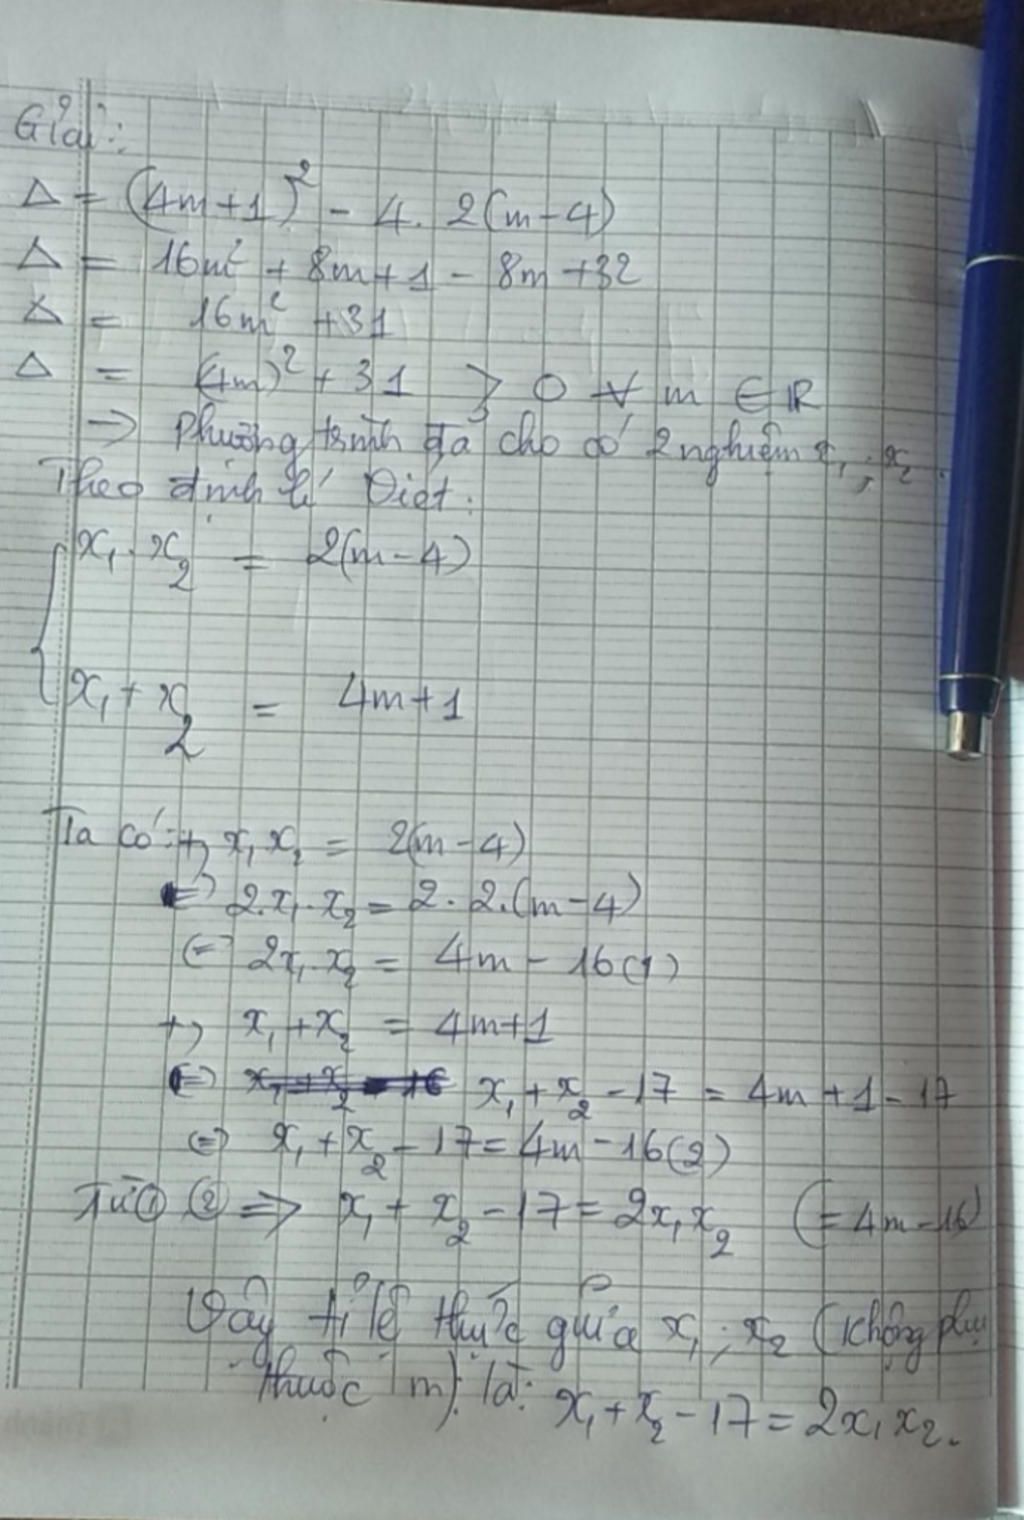 Giải:
Δ = (4m+1)² - 4. 2(m-4)
Δ = 16m² + 8m+1 - 8m +32
Δ = 16m² +31
Δ = (4m)² + 31 > 0 ∀ m ∈ R
→ Phương trình đã cho có 2 nghiệm x₁ ; x₂ .
Theo định lí Viet:
x₁ . x₂ = 2(m-4)
x₁ + x₂ = 4m+1
Ta có: +, x₁ x₂ = 2(m-4)
<=> 2.x₁.x₂ = 2. 2.(m-4)
<=> 2x₁.x₂ = 4m - 16(1)
+, x₁ +x₂ = 4m+1
<=> x₁ + x₂ - 17 = 4m +1 - 17
<=> x₁ + x₂ - 17 = 4m - 16(2)
Từ ① ② => x₁ + x₂ - 17 = 2x₁x₂ (= 4m - 16)
Vậy tỉ lệ thức giữa x₁ ; x₂ (không phụ
thuộc m) là: x₁ + x₂ - 17 = 2x₁x₂.